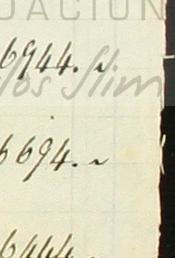 DACIÓN
6944. ~
los Slim
6694. ~
6444. ~